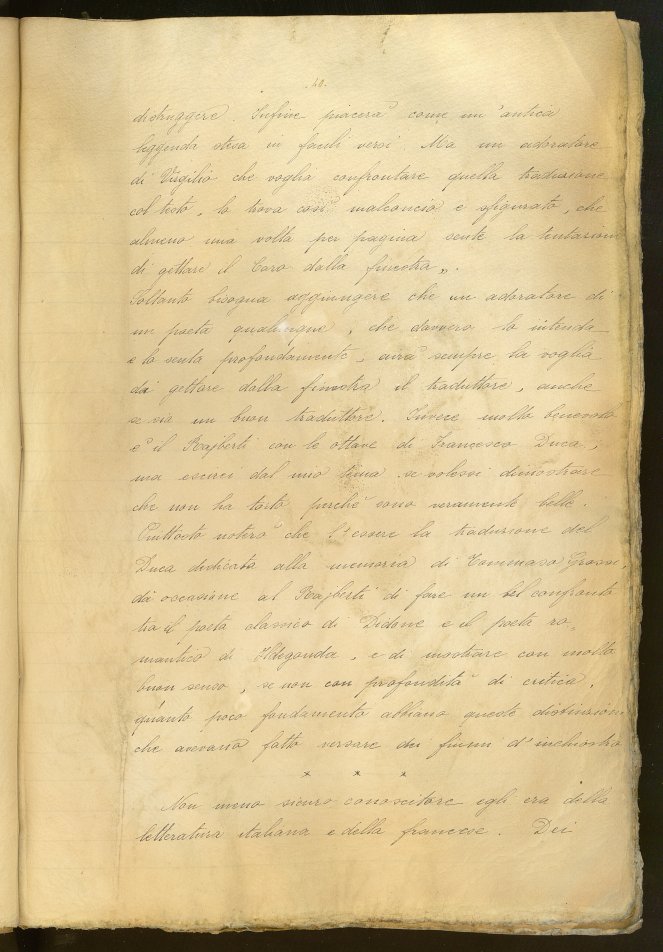 40.
distruggere. Infine piacerà come un'antica
leggenda stesa in facili versi. Ma un adoratore
di Virgilio che voglia confrontare quella traduzione
col testo, lo trova così malconcio e sfigurato, che
almeno una volta per pagina sente la tentazione
di gettare il Caro dalla finestra».
Soltanto bisogna aggiungere che un adoratore di
un poeta qualunque, che davvero lo intenda
e lo senta profondamente, avrà sempre la voglia
di gettare dalla finestra il traduttore, anche
se sia un buon traduttore. Invece molto benevolo
è il Rajberti con le ottave di Francesco Duca;
ma escirei dal mio tema se volessi dimostrare
che non ha torto perchè sono veramente belle.
Piuttosto noterò che l'essere la traduzione del
Duca dedicata alla memoria di Tommaso Grossi,
dà occasione al Rajberti di fare un bel confronto
tra il poeta classico di Didone e il poeta ro-
mantico di Ildegonda, e di mostrare con molto
buon senso, se non con profondità di critica,
quanto poco fondamento abbiano queste distinzioni
che avevano fatto versare dei fiumi d'inchiostro
* * *
Non meno sicuro conoscitore egli era della
letteratura italiana e della francese. Dei